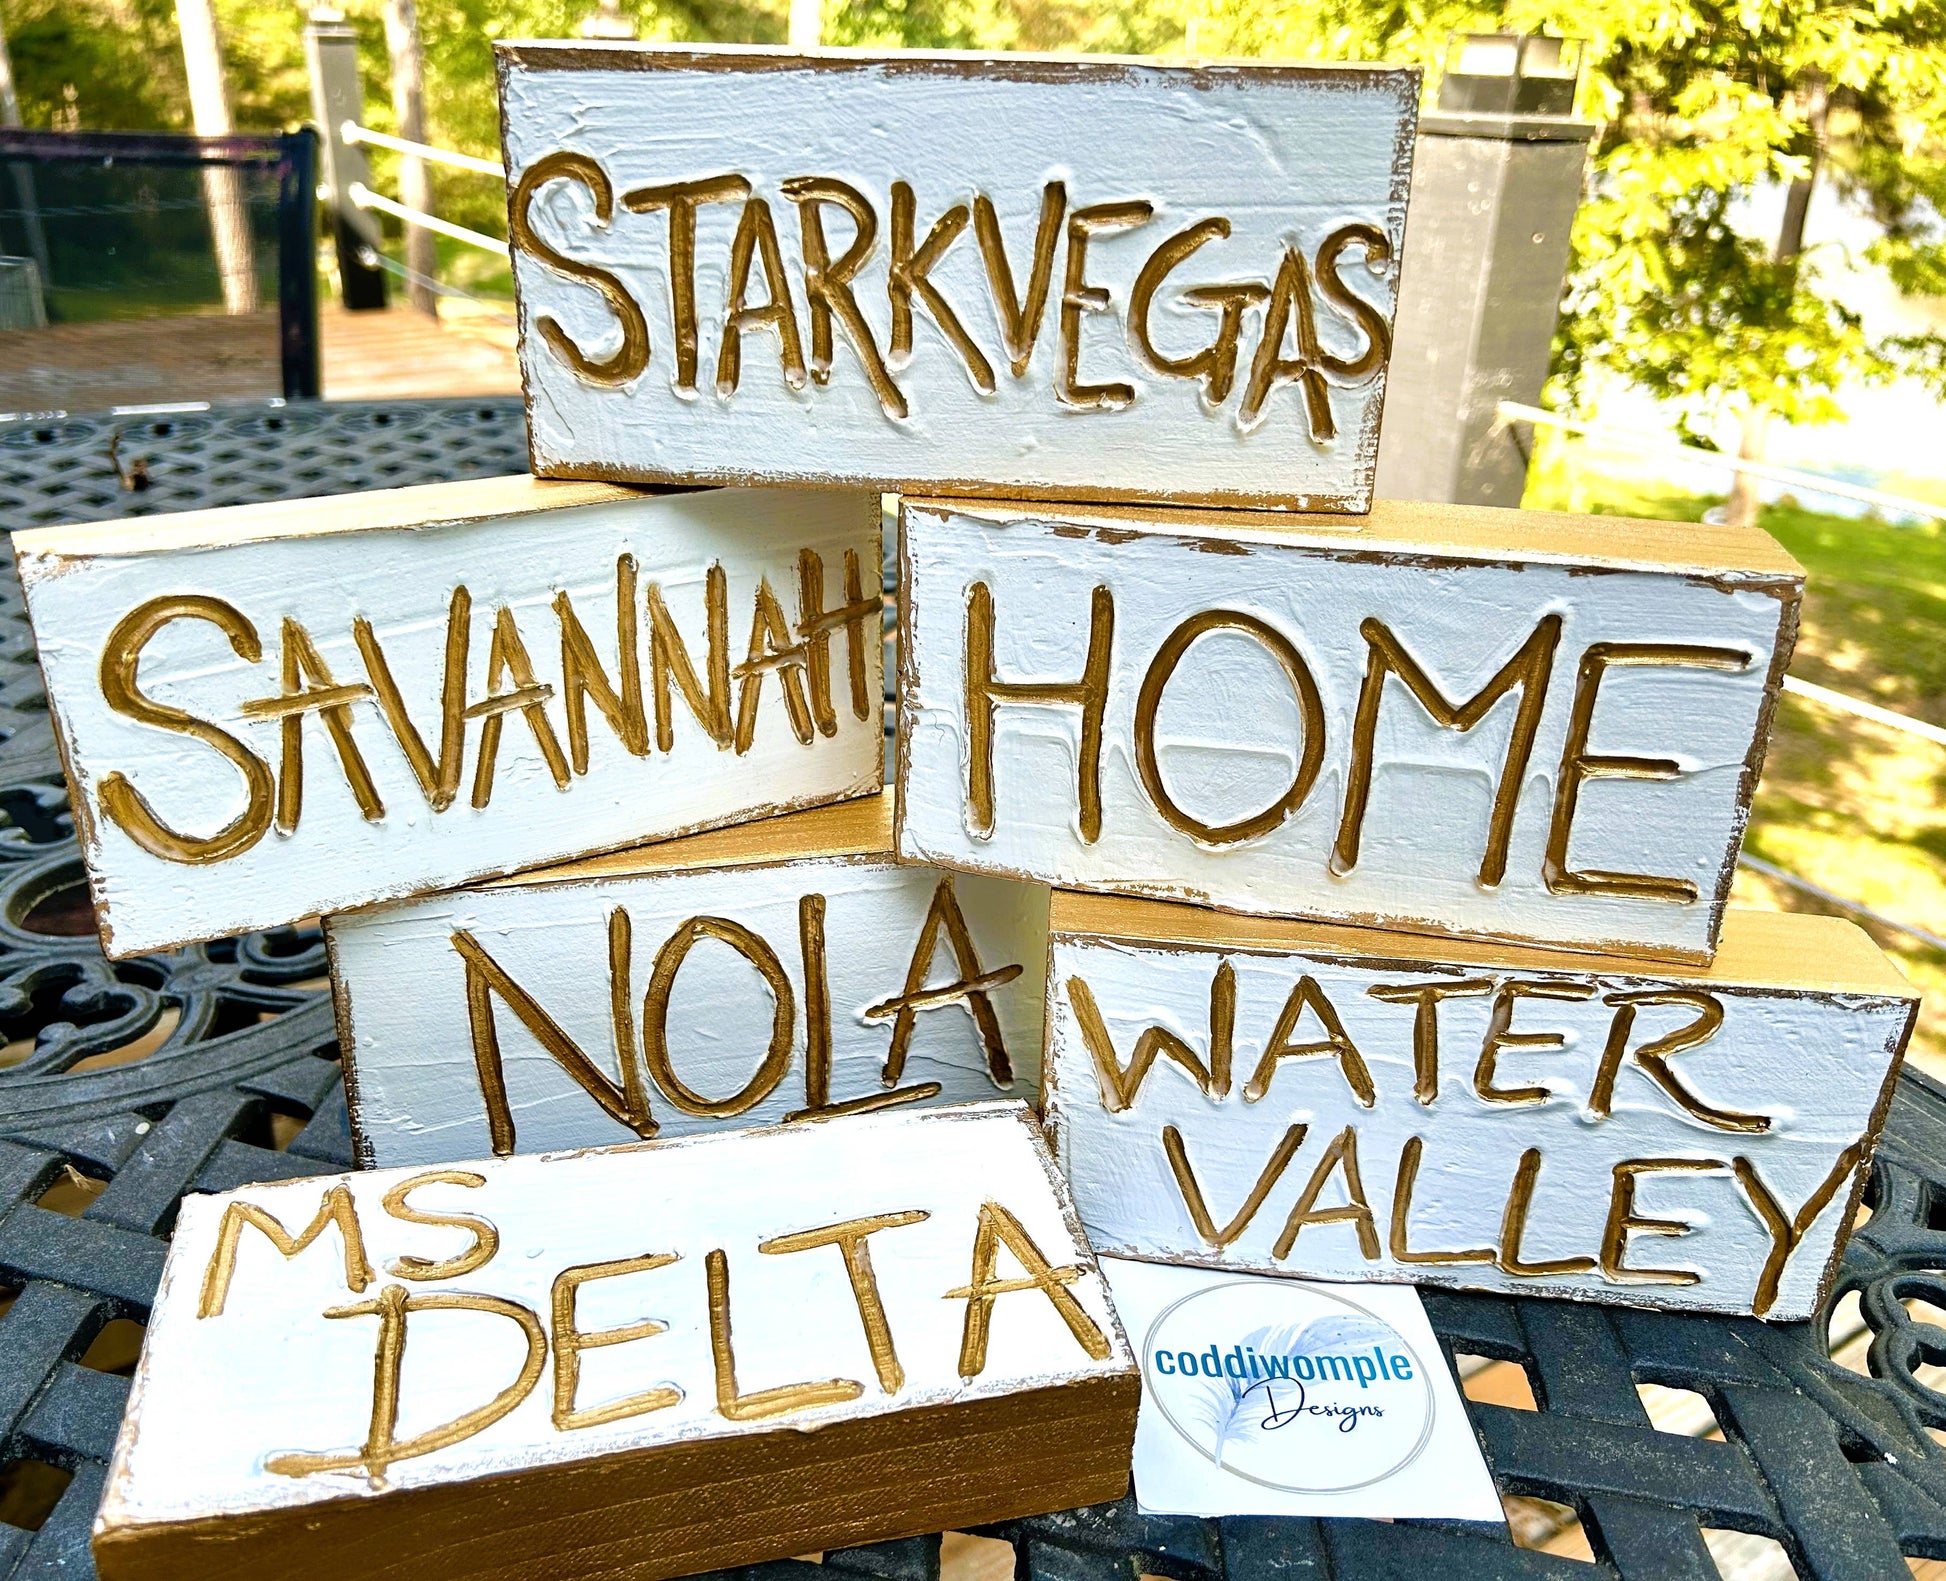 STARKVEGAS
SAVANNAH
HOME
NOLA
WATER
VALLEY
MS
DELTA
coddiwomple
Designs